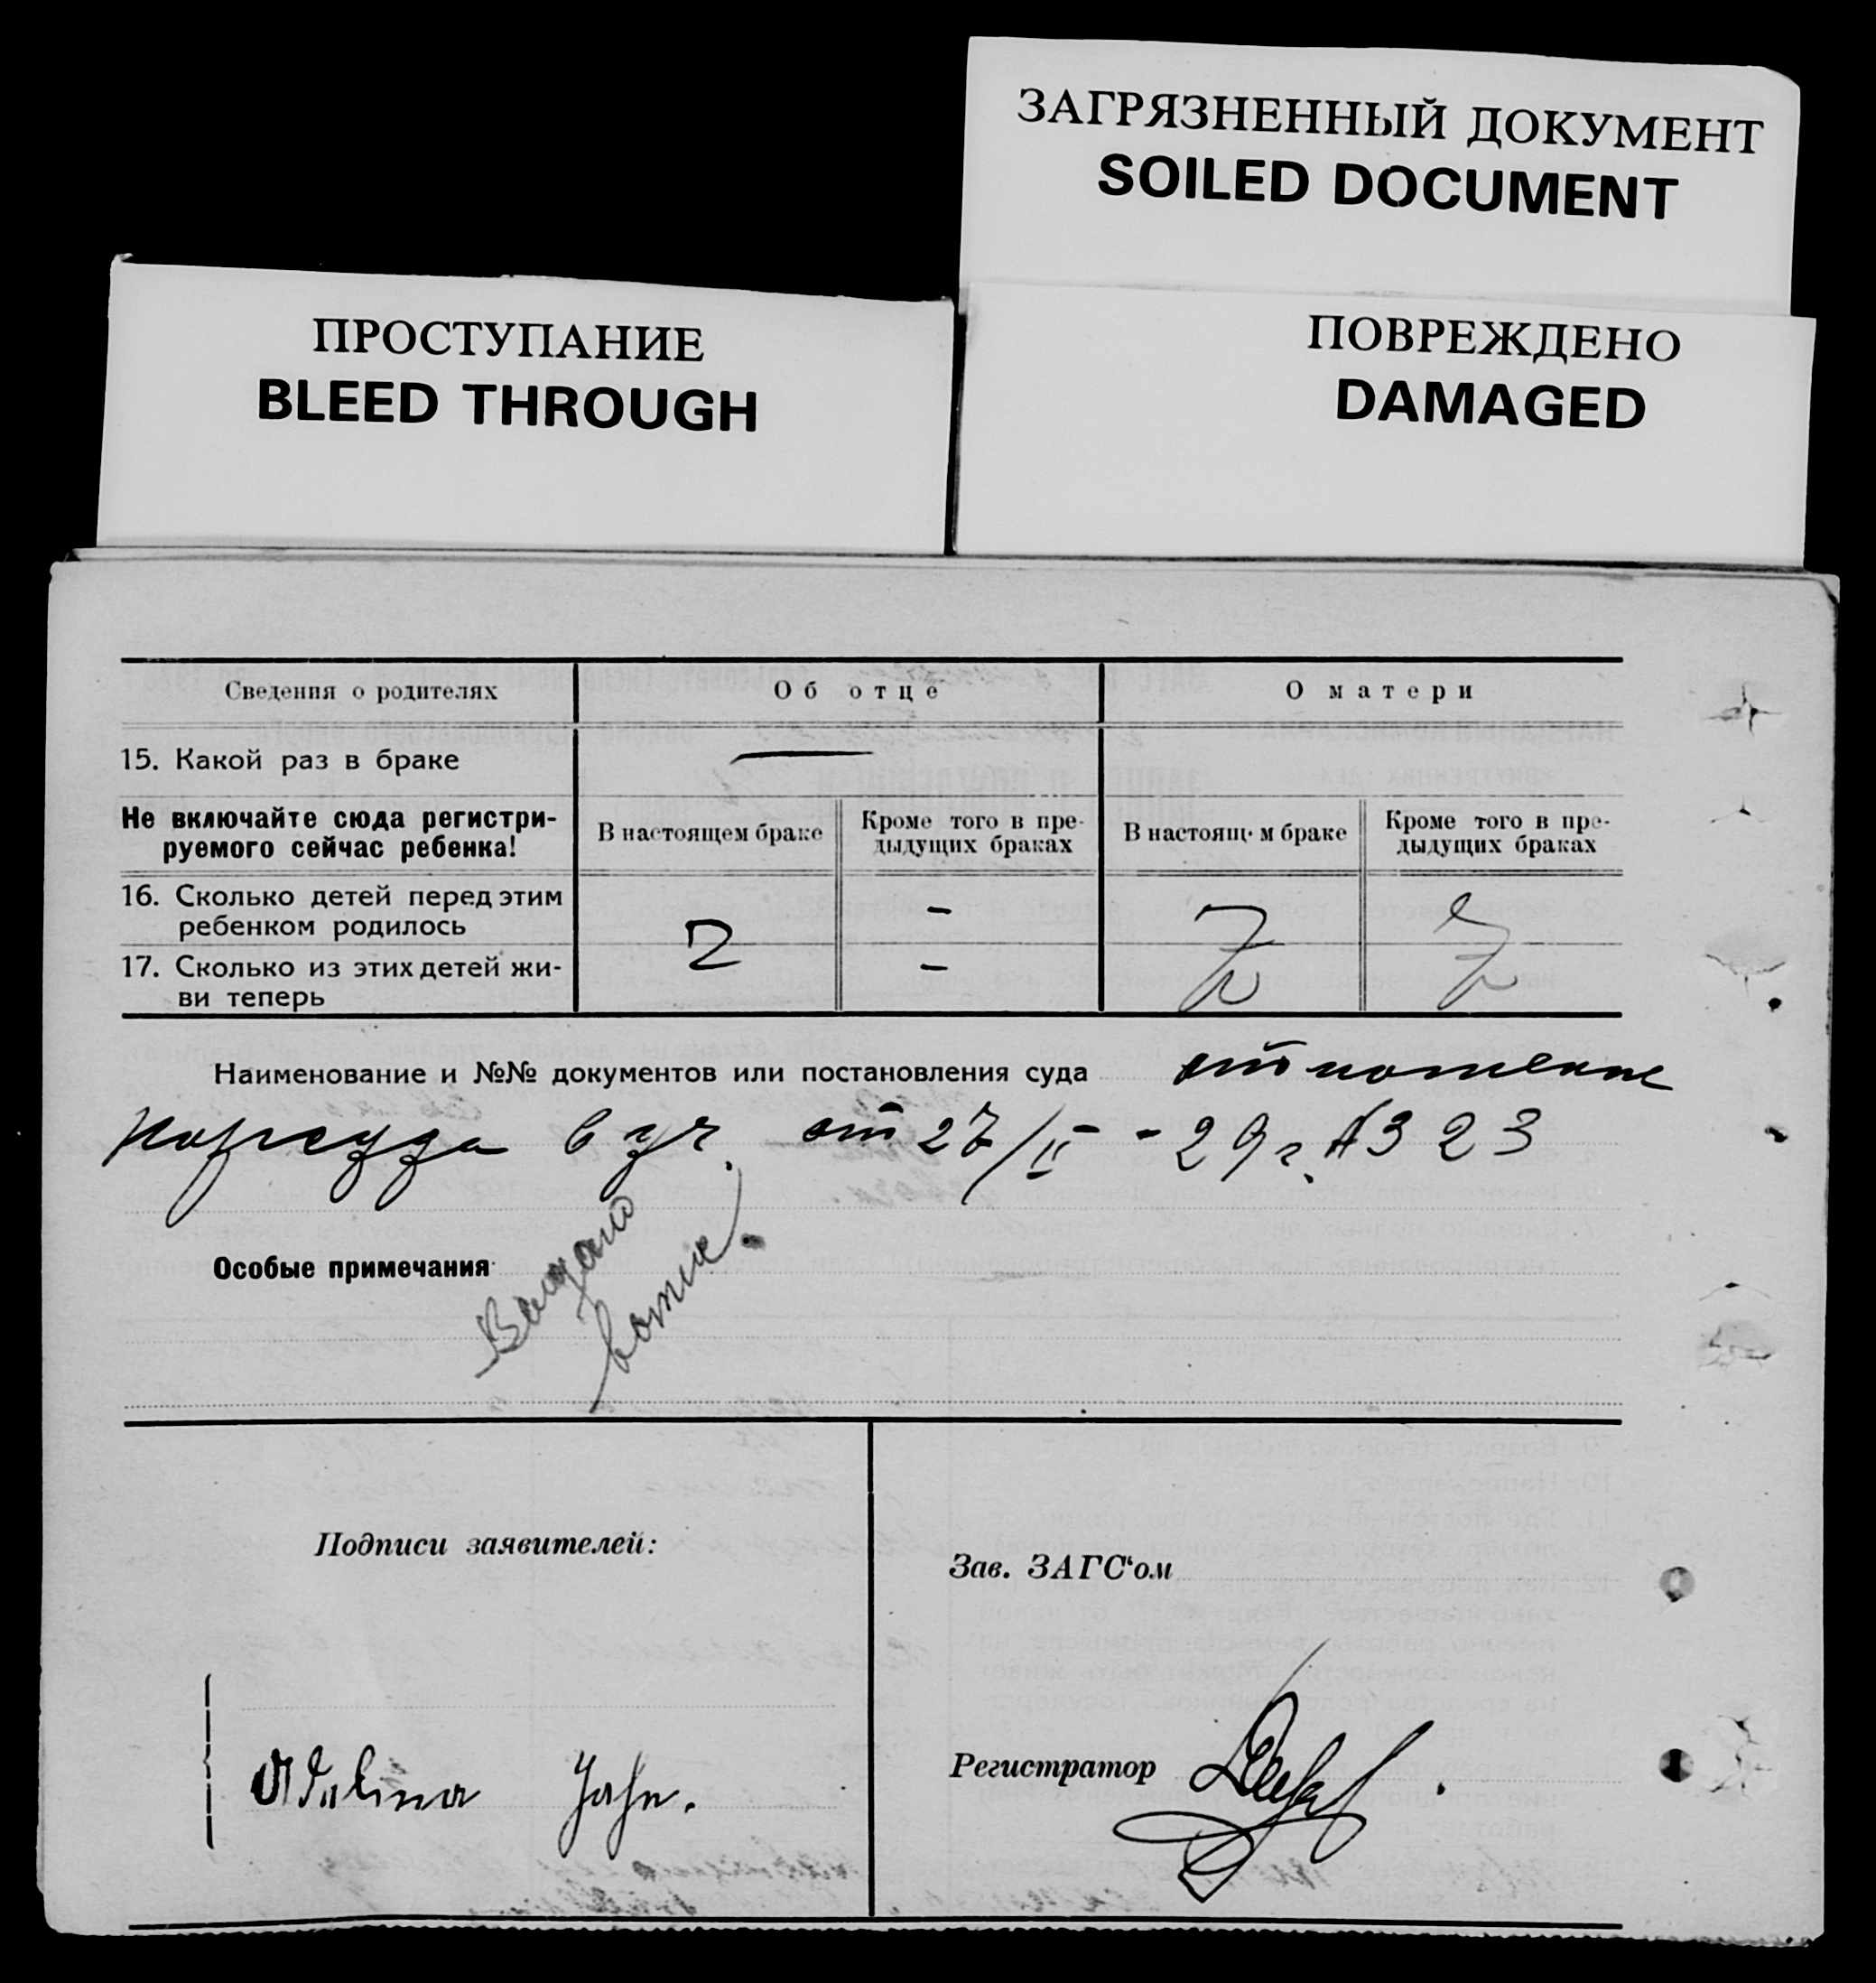 ЗАГРЯЗНЕННЫЙ ДОКУМЕНТ
SOILED DOCUMENT
ПРОСТУПАНИЕ
BLEED THROUGH
ПОВРЕЖДЕНО
DAMAGED
Сведения о родителях
Об отце
О матери
15. Какой раз в браке
—
Не включайте сюда регистри-
руемого сейчас ребенка!
В настоящем браке
Кроме того в пре-
дыдущих браках
В настоящ м браке
Кроме того в пре-
дыдущих браках
16. Сколько детей перед этим
ребенком родилось
2
-
17. Сколько из этих детей жи-
ви теперь
-
Наименование и №№ документов или постановления суда отношение
Нарсуда 6 уч. от 27/II - 29 г. № 323
Особые примечания
Подписи заявителей:
Зав. ЗАГС‘ом
Adalina Jahn.
Регистратор